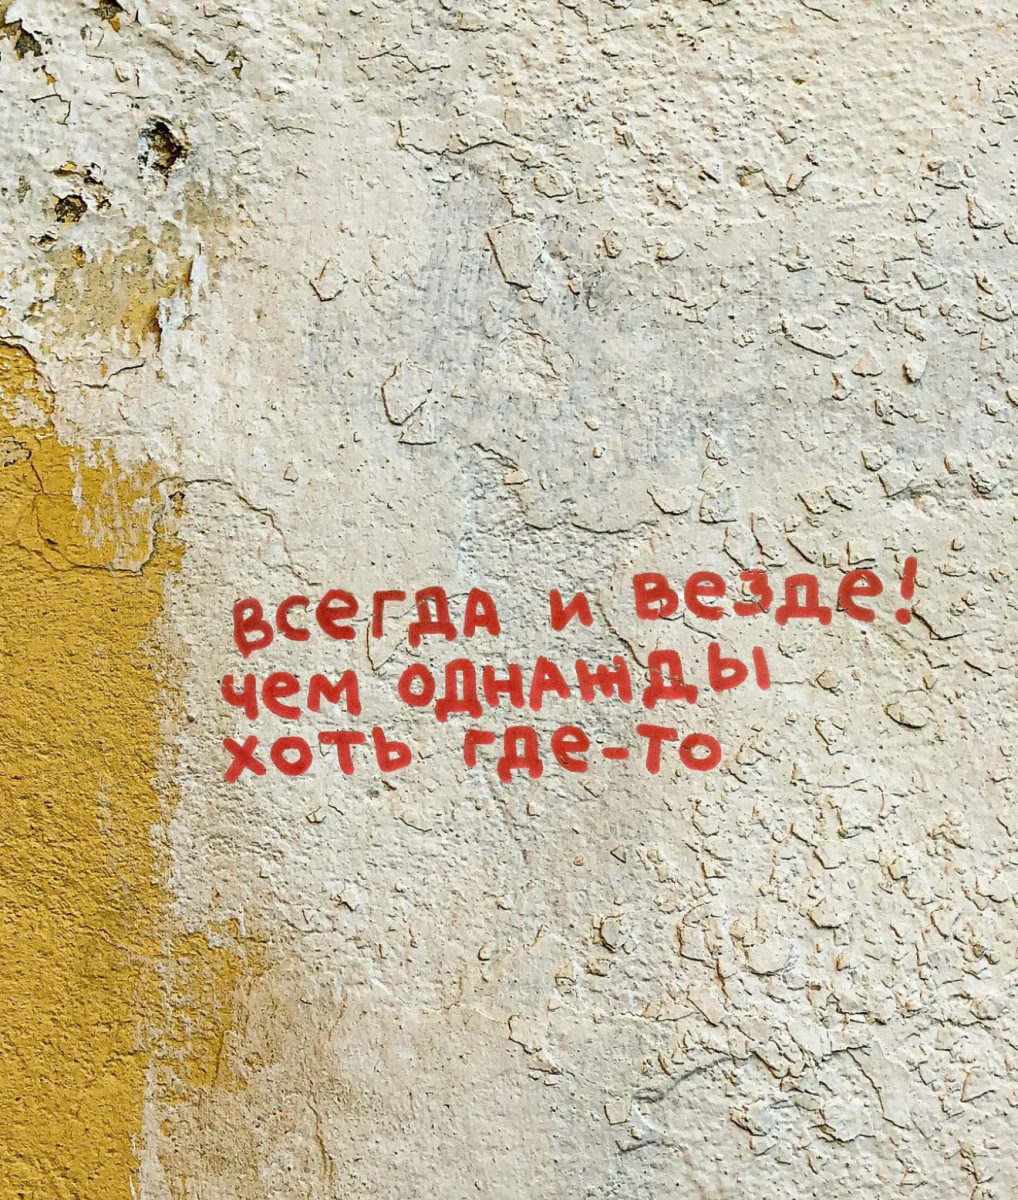 всегда и везде!
чем однажды
хоть где-то